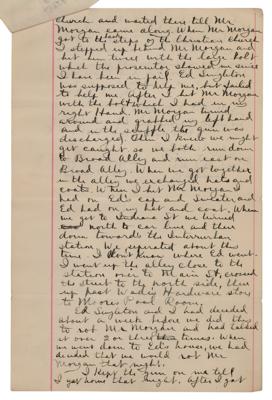 church and waited there till Mr
Morgan came along. When Mr Morgan
got to the steps of the Christian church
I stepped up behind Mr Morgan and
hit him twice with the large bolt
which the prosecutor showed me since
I have been in jail. Ed Singleton
was supposed to help me, but failed
to help me. After I hit Mr Morgan
with the bolt which I had in my
right hand, Mr Morgan turned
around and grabbed my left hand
and in the scuffle the gun was
discharged. Then I knew we might
get caught so we both run down
to Broad Alley and run east on
Broad Alley. When we got together
in the alley we exchanged hats and
coats. When I hit Mr Morgan I
had on Ed's cap and Sweater and
Ed had on my hat and coat. When
we got to Indiana St we turned
north to car line and then
down towards the Interurban
station. We seperated about this
time. I don't know where Ed went.
I went up the alley close to the
station over to Main St, crossed
the street to the north side, then
up past Hardware store
to Moores Pool Room.
Ed Singleton and I had decided
about a week before we did this
to rob Mr Morgan and had talked
it over 2 or three times. When
we went down to Ed's house, we had
decided that we would rob Mr
Morgan that night.
I kept the gun on me till
I got home that night. After I got